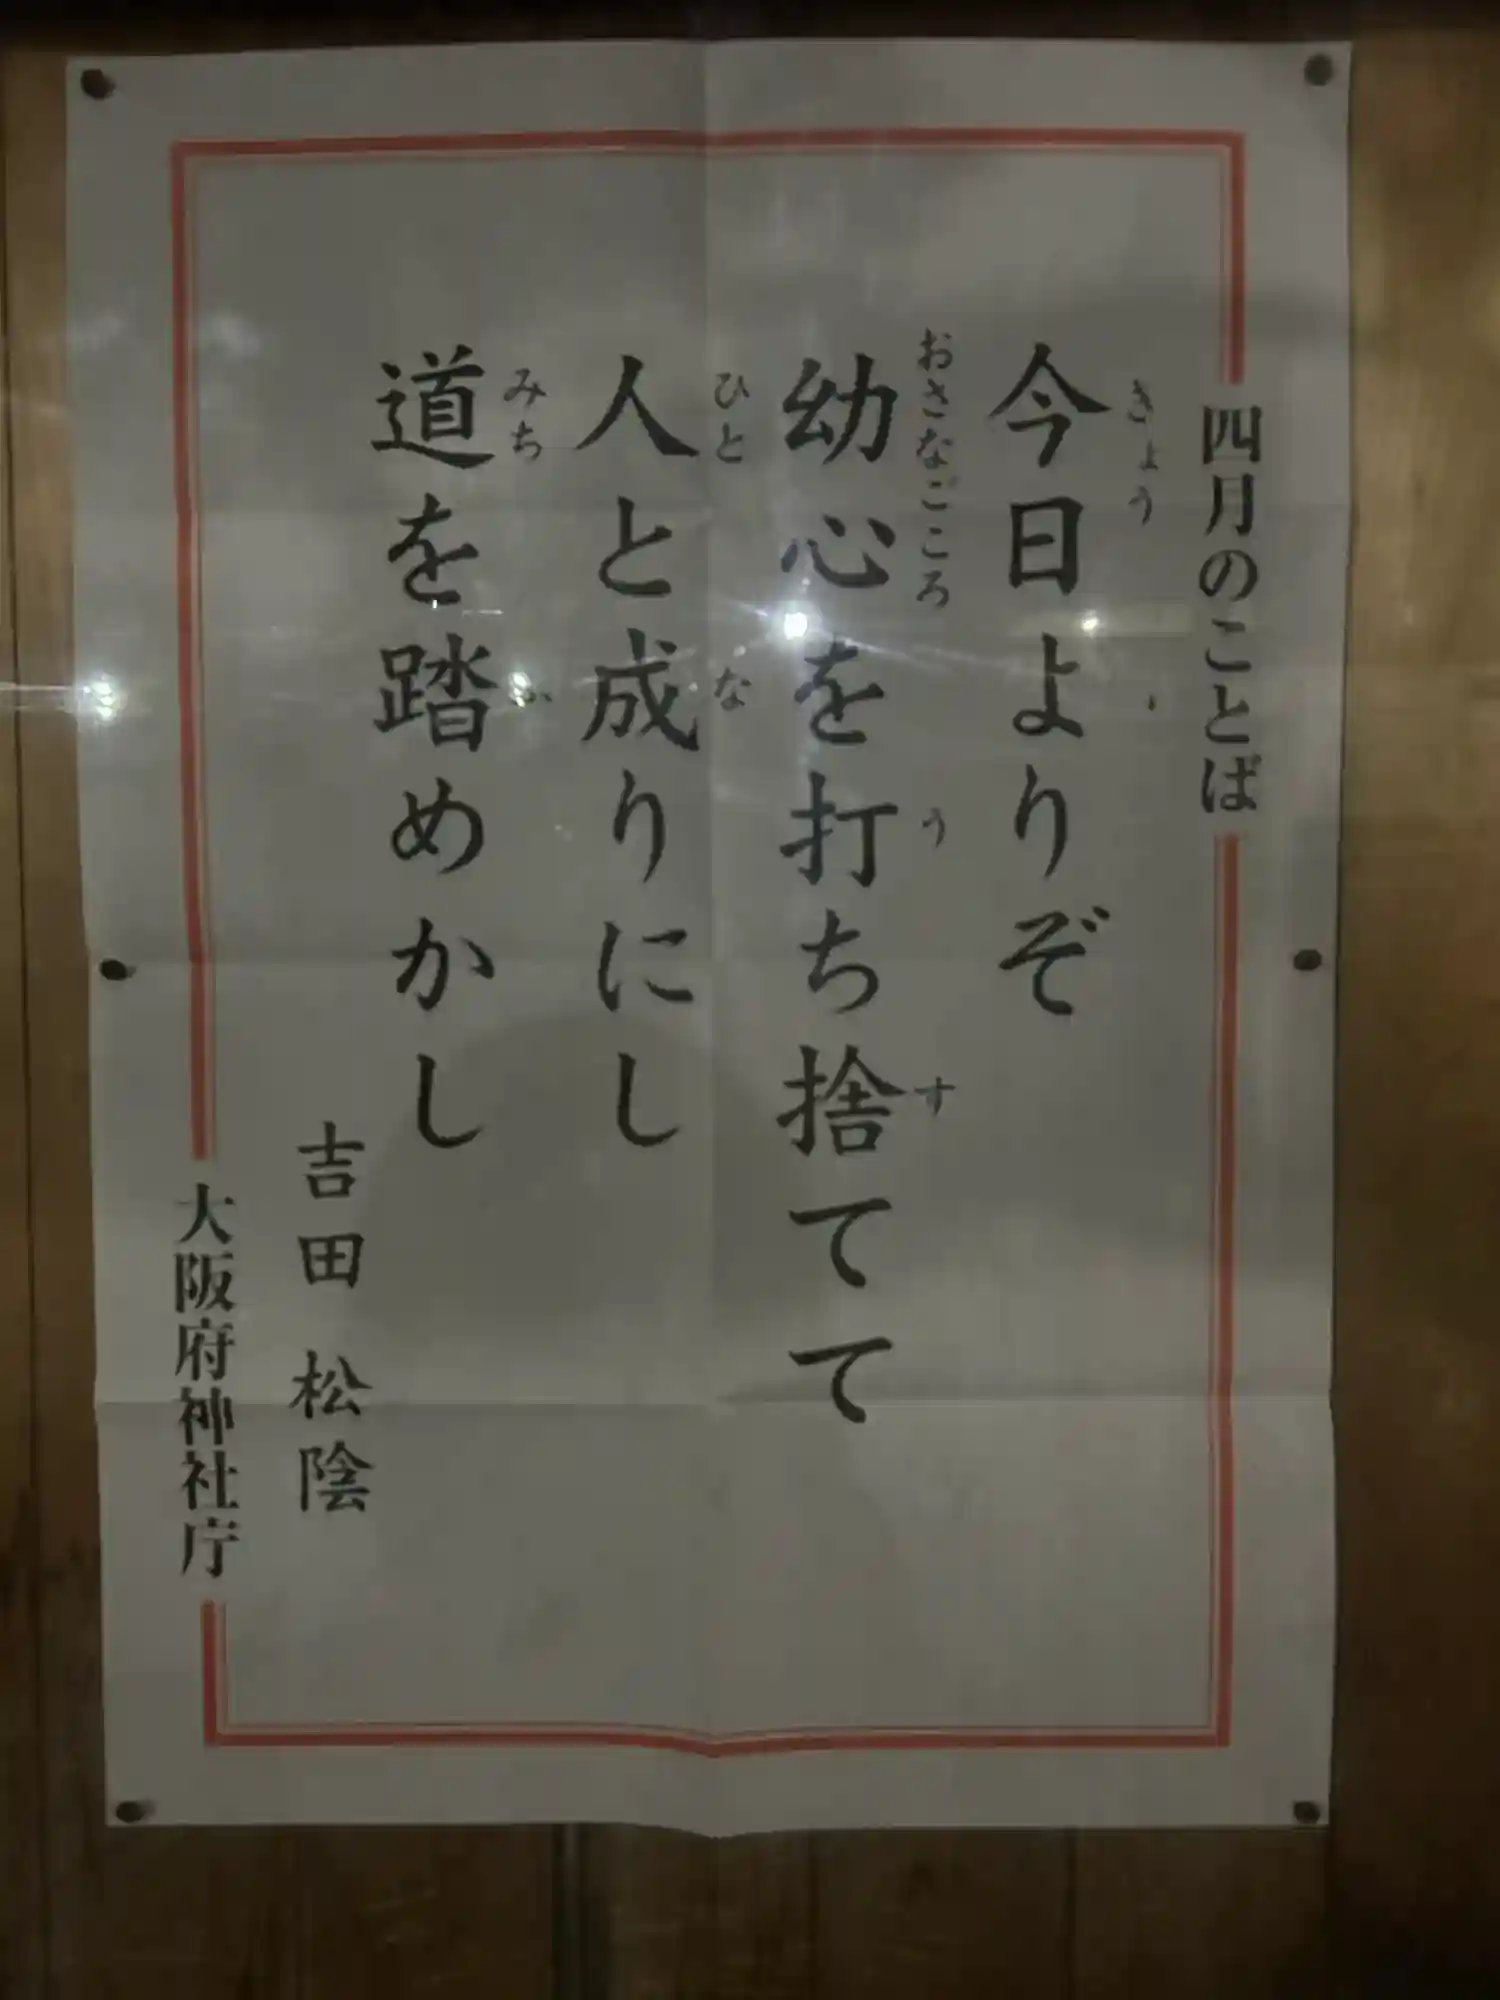 四月のことば
今日よりぞ
きょう
幼心を打ち捨てて
おさなごころ う す
人と成りにし
ひと な
道を踏めかし
みち ふ
吉田 松陰
大阪府神社庁